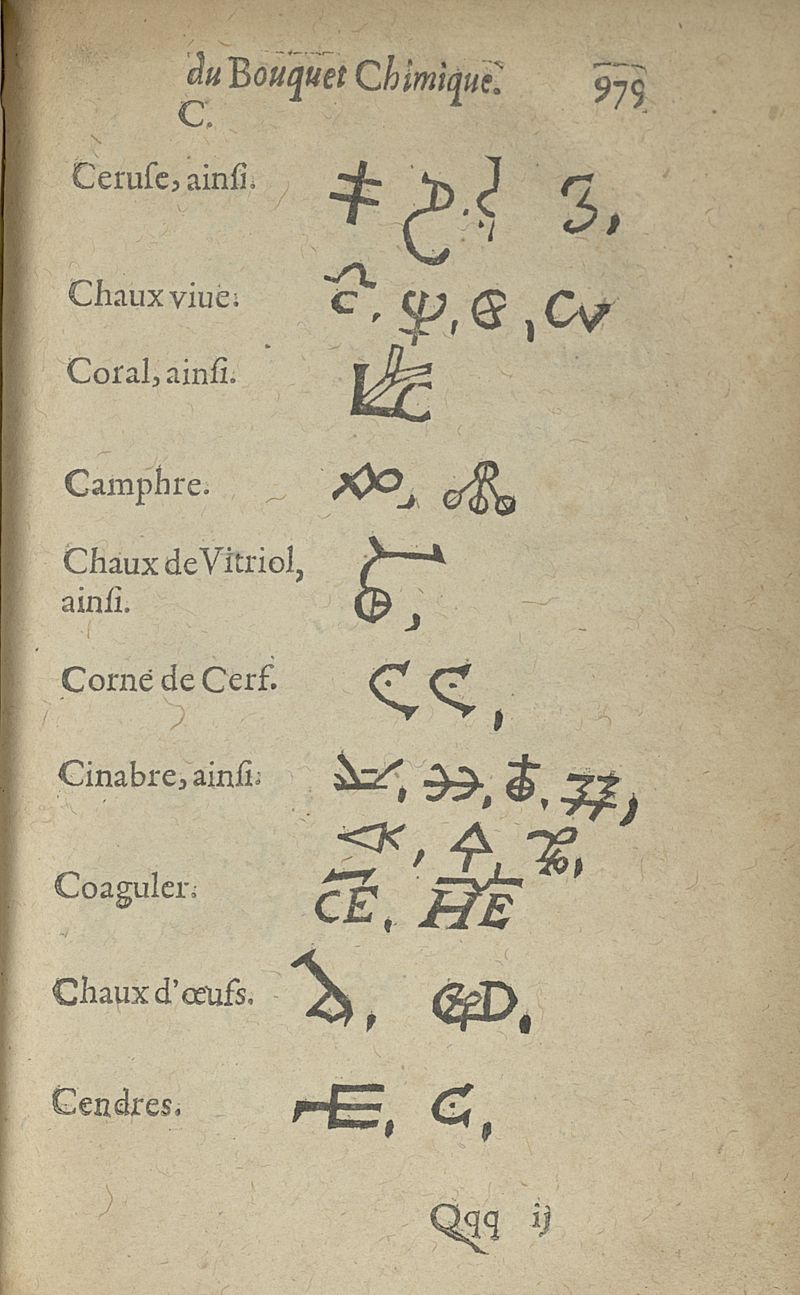 du Bouquet Chimique. 979
C.
Ceruſe, ainſi.
Chaux viue.
Coral, ainſi.
Camphre.
Chaux de Vitriol,
ainſi.
Corne de Cerf.
Cinabre, ainſi.
Coaguler. CE, HE
Chaux d'œufs.
Cendres.
Qqq ij